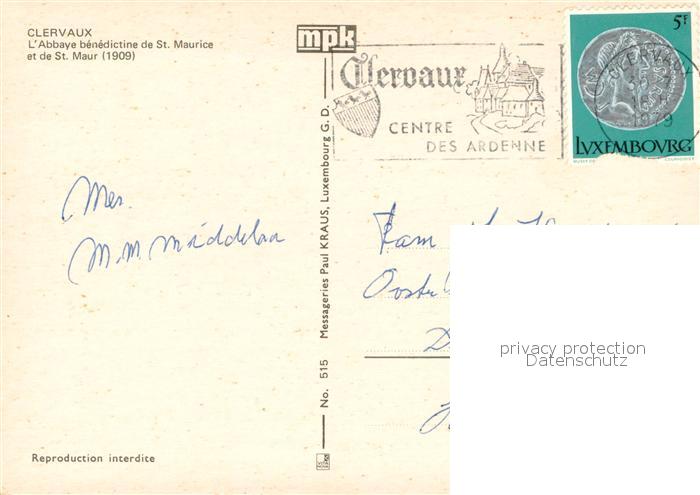 CLERVAUX
L'Abbaye bénédictine de St. Maurice
et de St. Maur (1909)
mpk
Clervaux
CENTRE
DES ARDENNE
5F
CLERVAUX
LVXEMBOVRG
Mes.
M. M.
No. 515 Messageries Paul KRAUS, Luxembourg G. D.
privacy protection
Datenschutz
Reproduction interdite